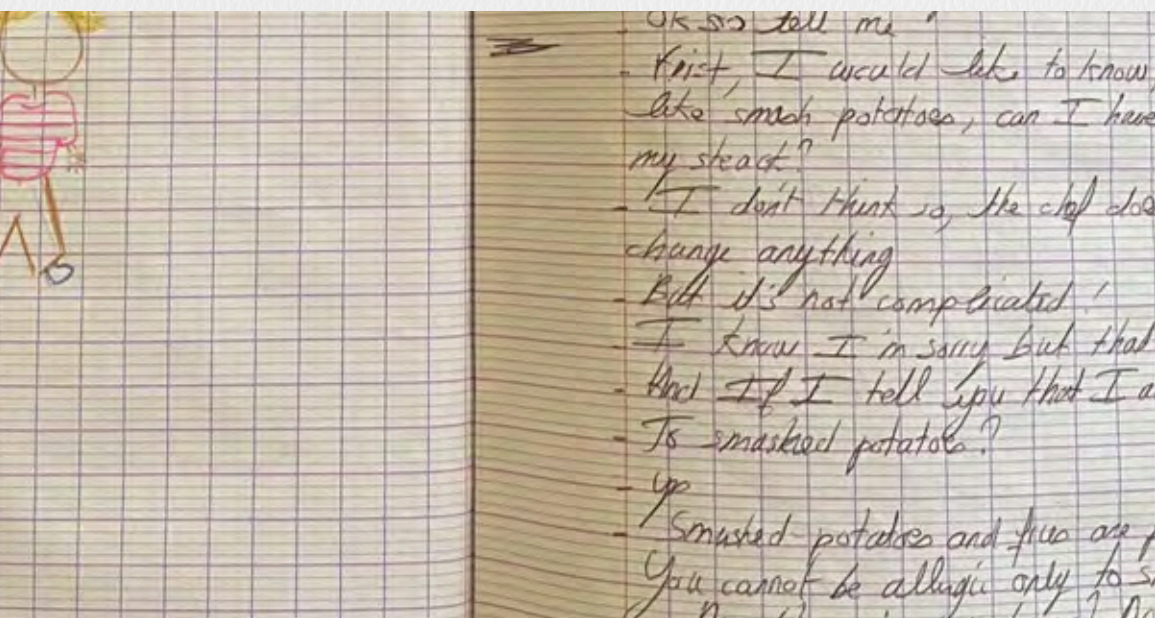 - Ok so tell me
- First, I would like to know,
like smash potatoes, can I have
my steack?
- I don't think so, the chef doe
change anything
- But it's not complicated!
- I know I'm sorry but that
- And If I tell you that I a
- To smashed potatoes?
- yp
- Smushed potatoes and fries are p
You cannot be allergic only to s